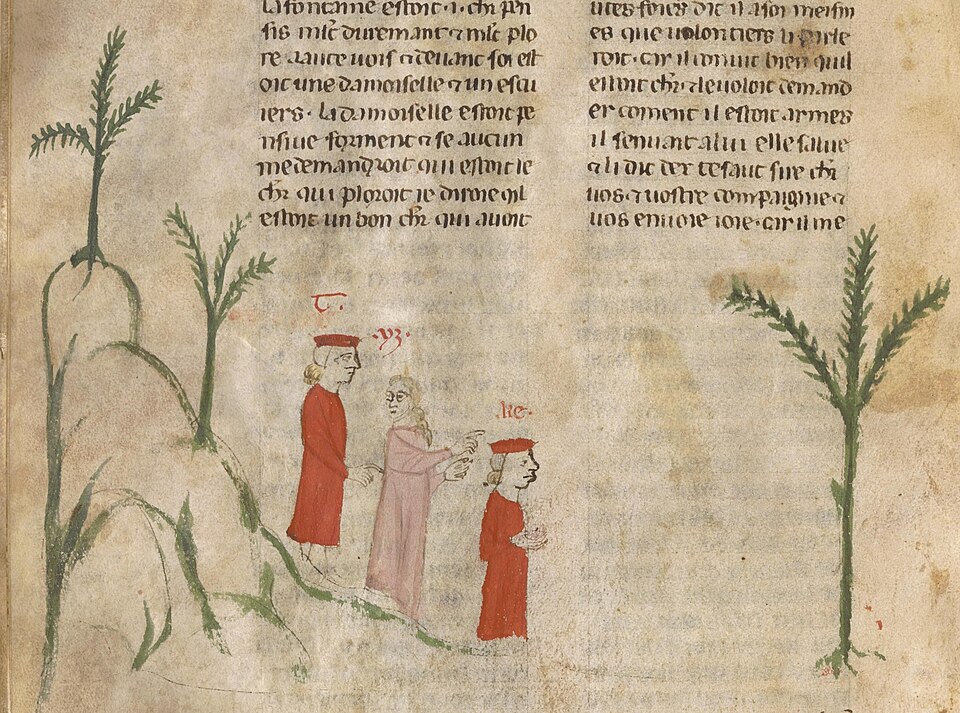 la fontaine estoit .i. chr pen
sis mlt durement ⁊ mlt plo
re a aute uois ⁊ deuant soi est
oit une damoiselle ⁊ un escu
iers. La damoiselle estoit pe
nsiue forment ⁊ se aucun
me demandroit qui estoit le
chr qui ploroit ie diroie qil
estoit un bon chr qui auoit
utes foies dit il a soi meism
es que uolontiers li parle
roit. car il conuit bien quil
estoit chr. ⁊ le uoloit demand
er coment il estoit armes
il a lui elle salue
⁊ li dit dex te saut sire chr
uos ⁊ uostre compaignie ⁊
uos enuoie ioie. car il me
T.
.yz.
.ke.